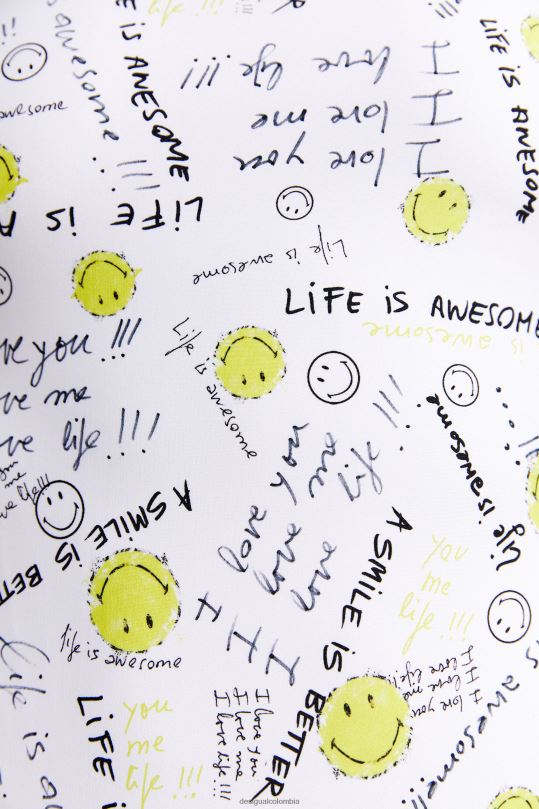 LIFE IS ANESOME
awesome !!!
awesome
I love life !!!
I love me
I love you
LIFE IS ANESOME
LIFE IS A
Life is awesome
LIFE IS AWESOME
is awesome
ve you !!!
ve me
ve life !!!
Life is awesome
life is awesome
I love you
I love me
I love life !!!
A SMILE IS BETTER
A SMILE IS BETTER
you
me
life !!!
life is awesome
I love you
I love me
I love life!
Life is a
LIFE i
you
me
life !!!
I love you
I love me
I love life !!!
is awesome!!!
desigualcolombia